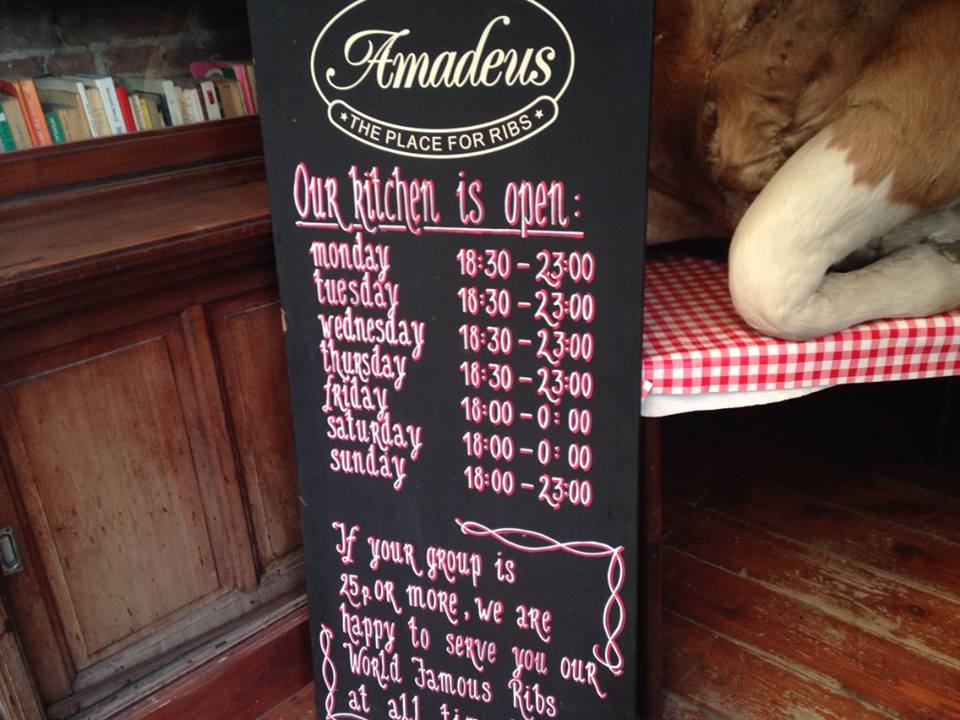 Amadeus
★ THE PLACE FOR RIBS ★
Our kitchen is open:
monday 18:30 - 23:00
tuesday 18:30 - 23:00
wednesday 18:30 - 23:00
thursday 18:30 - 23:00
friday 18:00 - 0:00
saturday 18:00 - 0:00
sunday 18:00 - 23:00
If your group is
25p. or more, we are
happy to serve you our
World Famous Ribs
at all